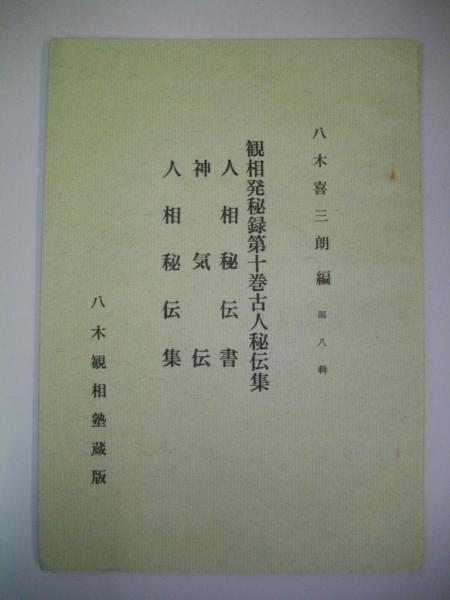 八木喜三朗編 第八輯
観相発秘録第十巻古人秘伝集
人相秘伝書
神気伝
人相秘伝集
八木観相塾蔵版